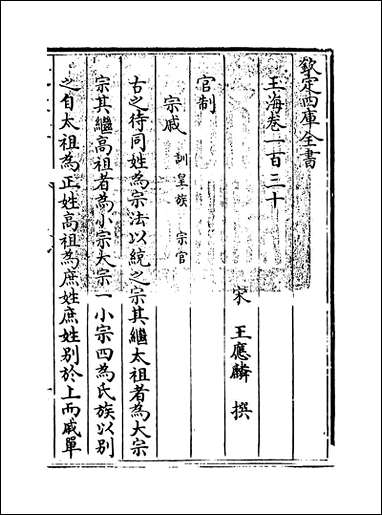 欽定四庫全書
玉海卷一百三十
宋 王應麟 撰
官制
宗戚 訓皇族 宗官
古之待同姓為宗法以統之宗其繼太祖者為大宗
宗其繼高祖者為小宗大宗一小宗四為氏族以別
之自太祖為正姓高祖為庶姓庶姓别於上而戚單